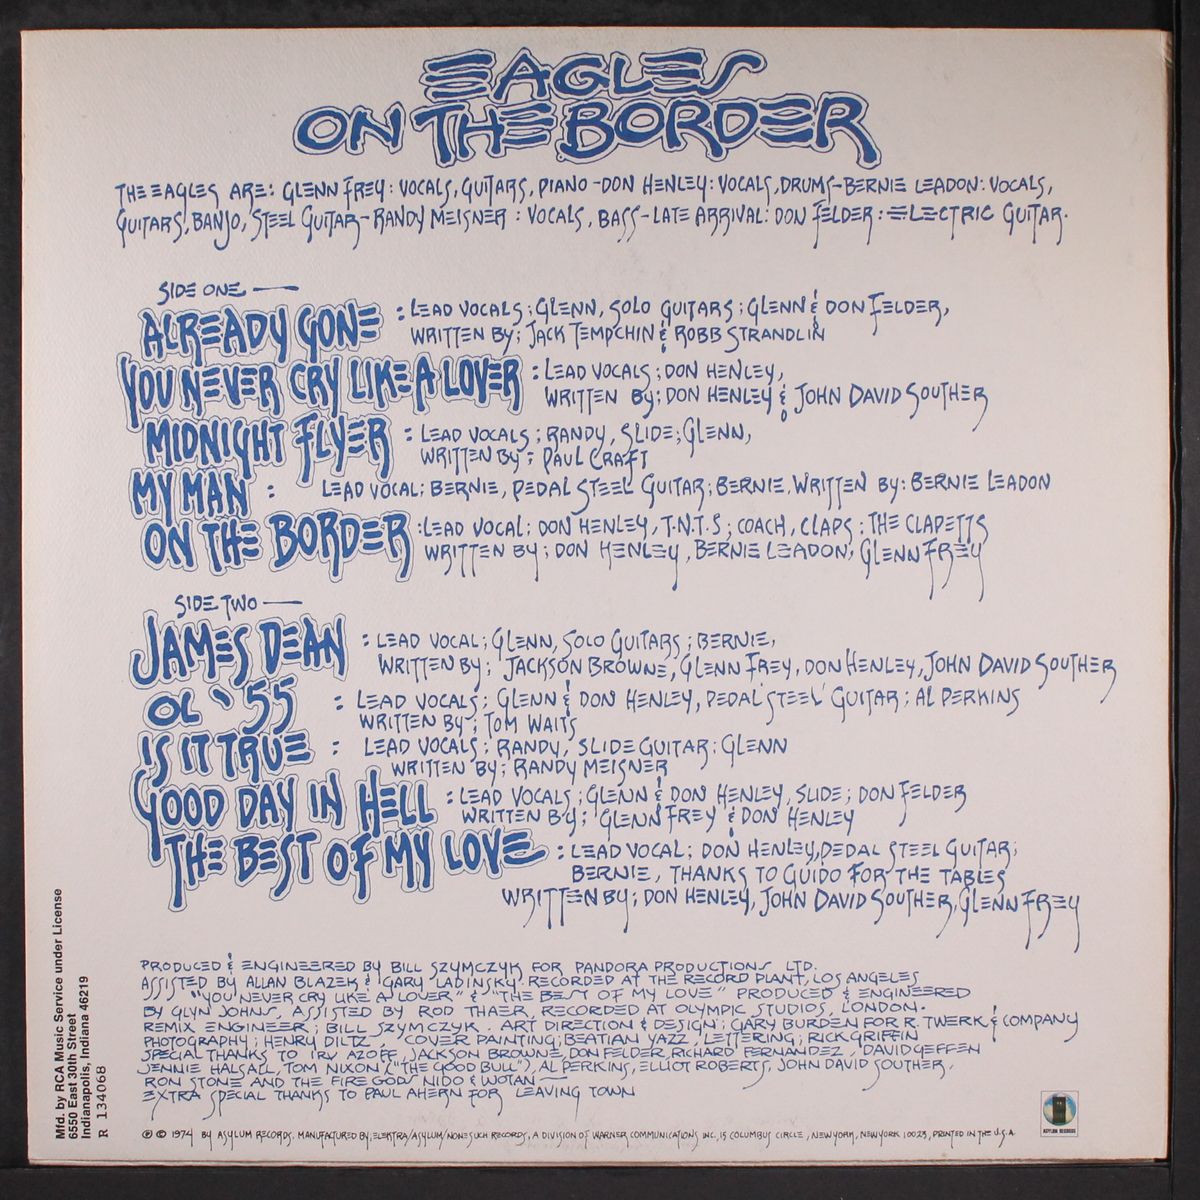 EAGLES
ON THE BORDER
THE EAGLES ARE: GLENN FREY: VOCALS, GUITARS, PIANO - DON HENLEY: VOCALS, DRUMS - BERNIE LEADON: VOCALS,
GUITARS, BANJO, STEEL GUITAR - RANDY MEISNER: VOCALS, BASS - LATE ARRIVAL: DON FELDER: ELECTRIC GUITAR.
SIDE ONE —
ALREADY GONE : LEAD VOCALS; GLENN, SOLO GUITARS; GLENN & DON FELDER,
WRITTEN BY; JACK TEMPCHIN & ROBB STRANDLIN
YOU NEVER CRY LIKE A LOVER : LEAD VOCALS; DON HENLEY,
WRITTEN BY; DON HENLEY & JOHN DAVID SOUTHER
MIDNIGHT FLYER : LEAD VOCALS; RANDY, SLIDE; GLENN,
WRITTEN BY; PAUL CRAFT
MY MAN : LEAD VOCAL; BERNIE, PEDAL STEEL GUITAR; BERNIE, WRITTEN BY: BERNIE LEADON
ON THE BORDER : LEAD VOCAL; DON HENLEY, T.N.T.S; COACH, CLAPS: THE CLAPETTS
WRITTEN BY; DON HENLEY, BERNIE LEADON, GLENN FREY
SIDE TWO —
JAMES DEAN : LEAD VOCAL; GLENN, SOLO GUITARS; BERNIE,
WRITTEN BY; JACKSON BROWNE, GLENN FREY, DON HENLEY, JOHN DAVID SOUTHER
OL '55 : LEAD VOCALS; GLENN & DON HENLEY, PEDAL STEEL GUITAR; AL PERKINS
WRITTEN BY; TOM WAITS
IS IT TRUE : LEAD VOCALS; RANDY, SLIDE GUITAR; GLENN
WRITTEN BY; RANDY MEISNER
GOOD DAY IN HELL : LEAD VOCALS; GLENN & DON HENLEY, SLIDE; DON FELDER
WRITTEN BY; GLENN FREY & DON HENLEY
THE BEST OF MY LOVE : LEAD VOCAL; DON HENLEY, PEDAL STEEL GUITAR;
BERNIE, THANKS TO GUIDO FOR THE TABLES
WRITTEN BY; DON HENLEY, JOHN DAVID SOUTHER, GLENN FREY
PRODUCED & ENGINEERED BY BILL SZYMCZYK FOR PANDORA PRODUCTIONS LTD.
ASSISTED BY ALLAN BLAZEK & GARY LADINSKY RECORDED AT THE RECORD PLANT, LOS ANGELES
"YOU NEVER CRY LIKE A LOVER" & "THE BEST OF MY LOVE" PRODUCED & ENGINEERED
BY GLYN JOHNS, ASSISTED BY ROD THAER, RECORDED AT OLYMPIC STUDIOS, LONDON.
REMIX ENGINEER; BILL SZYMCZYK. ART DIRECTION & DESIGN; GARY BURDEN FOR R. TWERK & COMPANY
PHOTOGRAPHY; HENRY DILTZ, COVER PAINTING; BEATIAN YAZZ, LETTERING; RICK GRIFFIN
SPECIAL THANKS TO IRV AZOFF, JACKSON BROWNE, DON FELDER, RICHARD FERNANDEZ, DAVID GEFFEN
JENNIE HALSALL, TOM NIXON ("THE GOOD BULL"), AL PERKINS, ELLIOT ROBERTS, JOHN DAVID SOUTHER,
RON STONE AND THE FIRE GODS NIDO & WOTAN —
EXTRA SPECIAL THANKS TO PAUL AHERN FOR LEAVING TOWN
℗ © 1974 BY ASYLUM RECORDS. MANUFACTURED BY, ELEKTRA/ASYLUM/NONESUCH RECORDS, A DIVISION OF WARNER COMMUNICATIONS INC, 15 COLUMBUS CIRCLE, NEW YORK, NEW YORK 10023, PRINTED IN THE U.S.A.
ASYLUM RECORDS
Mfd. by RCA Music Service under License
6550 East 30th Street
Indianapolis, Indiana 46219
R 134068